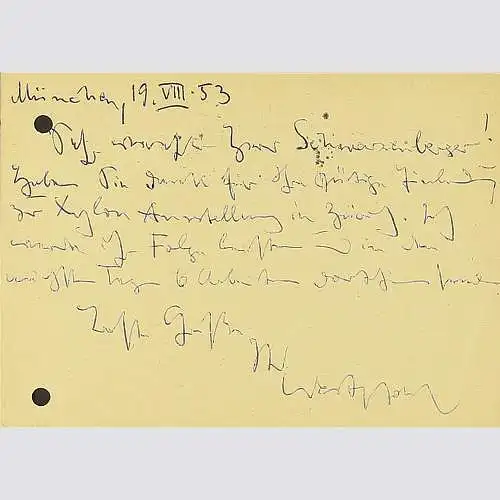 München, 19. VIII. 53
Sehr verehrter Herr Schwarzenberger!
Haben Sie Dank für Ihre gütige Einladung
zur Xylon Ausstellung in Zürich. Ich
werde ihr Folge leisten und in den
nächsten Tagen 6 Arbeiten dorthin senden
Beste Grüße
Ihr